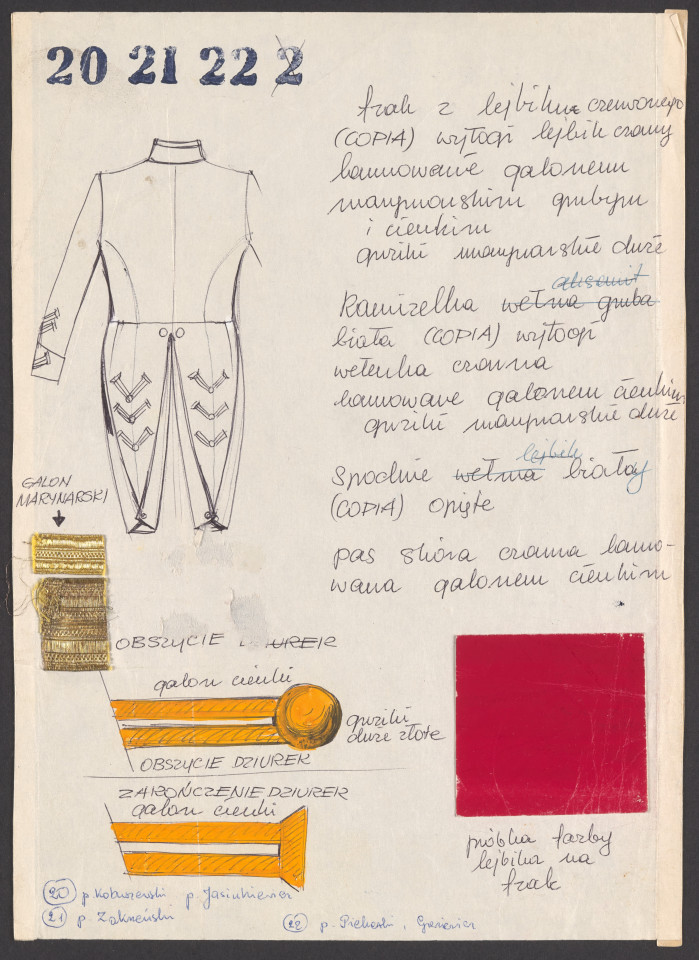 20 21 22 2
frak z lejbiku czerwonego
(COPIA) wyłogi lejbik czarny
lamowanie galonem
marynarskim grubym
i cienkim
guziki marynarskie duże
aksamit
Kamizelka wełna gruba
biała (COPIA) wyłogi
wełenka czarna
lamowane galonem cienkim
guziki marynarskie duże
lejbik
Spodnie wełna biały
(COPIA) opięte
pas skóra czarna lamo-
wana galonem cienkim
GALON
MARYNARSKI
OBSZYCIE DZIUREK
galon cienki
guziki
duże złote
OBSZYCIE DZIUREK
ZAKOŃCZENIE DZIUREK
galon cienki
próbka farby
lejbika na
frak
20 p. Kobuszewski p. Jasiukiewicz
21 p. Zakrzeński
22 p.